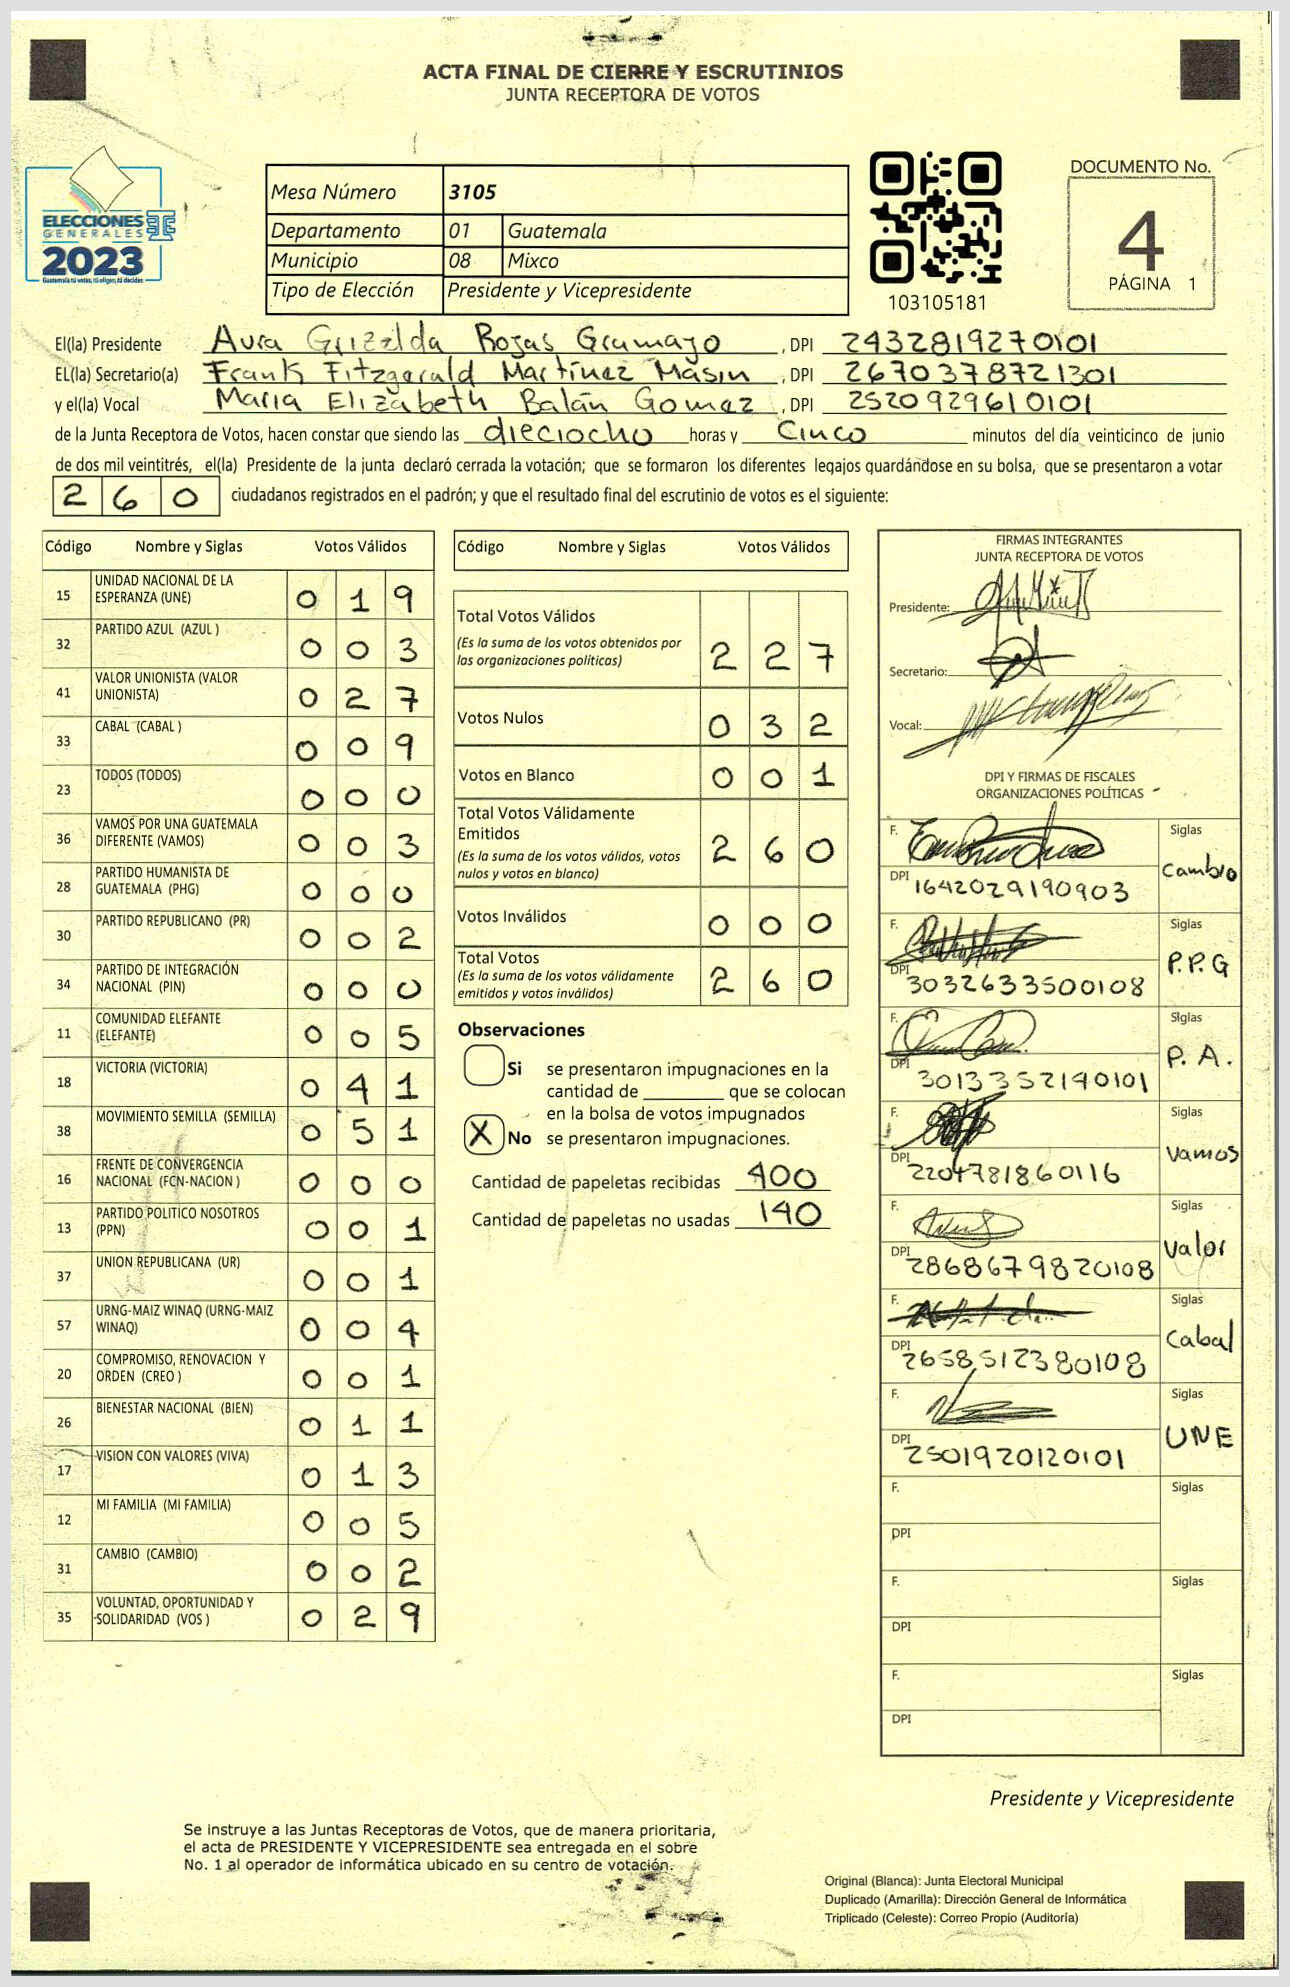 ACTA FINAL DE CIERRE Y ESCRUTINIOS
JUNTA RECEPTORA DE VOTOS
ELECCIONES
GENERALES
2023
Guatemala tú votas, tú eliges, tú decides
Mesa Número 3105
Departamento 01 Guatemala
Municipio 08 Mixco
Tipo de Elección Presidente y Vicepresidente
103105181
DOCUMENTO No.
4
PÁGINA 1
El(la) Presidente Aura Grizelda Rojas Gramajo, DPI 2432819270101
EL(la) Secretario(a) Frank Fitzgerald Martínez Masin, DPI 2670378721301
y el(la) Vocal Maria Elizabeth Balán Gomez, DPI 2520929610101
de la Junta Receptora de Votos, hacen constar que siendo las dieciocho horas y cinco minutos del día veinticinco de junio
de dos mil veintitrés, el(la) Presidente de la junta declaró cerrada la votación; que se formaron los diferentes legajos guardándose en su bolsa, que se presentaron a votar
260 ciudadanos registrados en el padrón; y que el resultado final del escrutinio de votos es el siguiente:
Código Nombre y Siglas Votos Válidos
15 UNIDAD NACIONAL DE LA ESPERANZA (UNE) 019
32 PARTIDO AZUL (AZUL ) 003
41 VALOR UNIONISTA (VALOR UNIONISTA) 027
33 CABAL (CABAL ) 009
23 TODOS (TODOS) 000
36 VAMOS POR UNA GUATEMALA DIFERENTE (VAMOS) 003
28 PARTIDO HUMANISTA DE GUATEMALA (PHG) 000
30 PARTIDO REPUBLICANO (PR) 002
34 PARTIDO DE INTEGRACIÓN NACIONAL (PIN) 000
11 COMUNIDAD ELEFANTE (ELEFANTE) 005
18 VICTORIA (VICTORIA) 041
38 MOVIMIENTO SEMILLA (SEMILLA) 051
16 FRENTE DE CONVERGENCIA NACIONAL (FCN-NACION ) 000
13 PARTIDO POLITICO NOSOTROS (PPN) 001
37 UNION REPUBLICANA (UR) 001
57 URNG-MAIZ WINAQ (URNG-MAIZ WINAQ) 004
20 COMPROMISO, RENOVACION Y ORDEN (CREO ) 001
26 BIENESTAR NACIONAL (BIEN) 011
17 VISION CON VALORES (VIVA) 013
12 MI FAMILIA (MI FAMILIA) 005
31 CAMBIO (CAMBIO) 002
35 VOLUNTAD, OPORTUNIDAD Y SOLIDARIDAD (VOS ) 029
Código Nombre y Siglas Votos Válidos
Total Votos Válidos
(Es la suma de los votos obtenidos por
las organizaciones políticas) 227
Votos Nulos 032
Votos en Blanco 001
Total Votos Válidamente
Emitidos
(Es la suma de los votos válidos, votos
nulos y votos en blanco) 260
Votos Inválidos 000
Total Votos
(Es la suma de los votos válidamente
emitidos y votos inválidos) 260
Observaciones
Si se presentaron impugnaciones en la
cantidad de ________ que se colocan
en la bolsa de votos impugnados
X No se presentaron impugnaciones.
Cantidad de papeletas recibidas 400
Cantidad de papeletas no usadas 140
FIRMAS INTEGRANTES
JUNTA RECEPTORA DE VOTOS
Presidente:
Secretario:
Vocal:
DPI Y FIRMAS DE FISCALES
ORGANIZACIONES POLÍTICAS
F. Siglas
DPI 1642029190903 Cambio
F. Siglas
DPI 3032633500108 P.P.G
F. Siglas
DPI 3013352140101 P.A.
F. Siglas
DPI 2204781860116 Vamos
F. Siglas
DPI 2868679820108 Valor
F. Siglas
DPI 2658512380108 Cabal
F. Siglas
DPI 2501920120101 UNE
F. Siglas
DPI
F. Siglas
DPI
F. Siglas
DPI
Presidente y Vicepresidente
Se instruye a las Juntas Receptoras de Votos, que de manera prioritaria,
el acta de PRESIDENTE Y VICEPRESIDENTE sea entregada en el sobre
No. 1 al operador de informática ubicado en su centro de votación.
Original (Blanca): Junta Electoral Municipal
Duplicado (Amarilla): Dirección General de Informática
Triplicado (Celeste): Correo Propio (Auditoría)